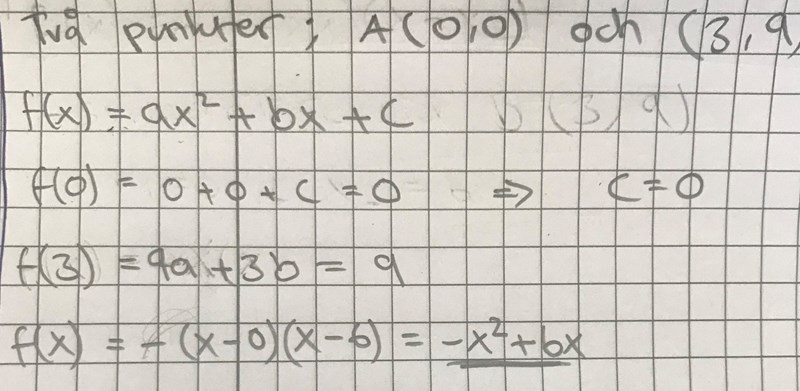 Två punkter; A(0,0) och (3,9)
f(x) = ax² + bx + c b(3,9)
f(0) = 0 + 0 + c = 0 ⇒ c = 0
f(3) = 9a + 3b = 9
f(x) = -(x-0)(x-6) = -x² + 6x